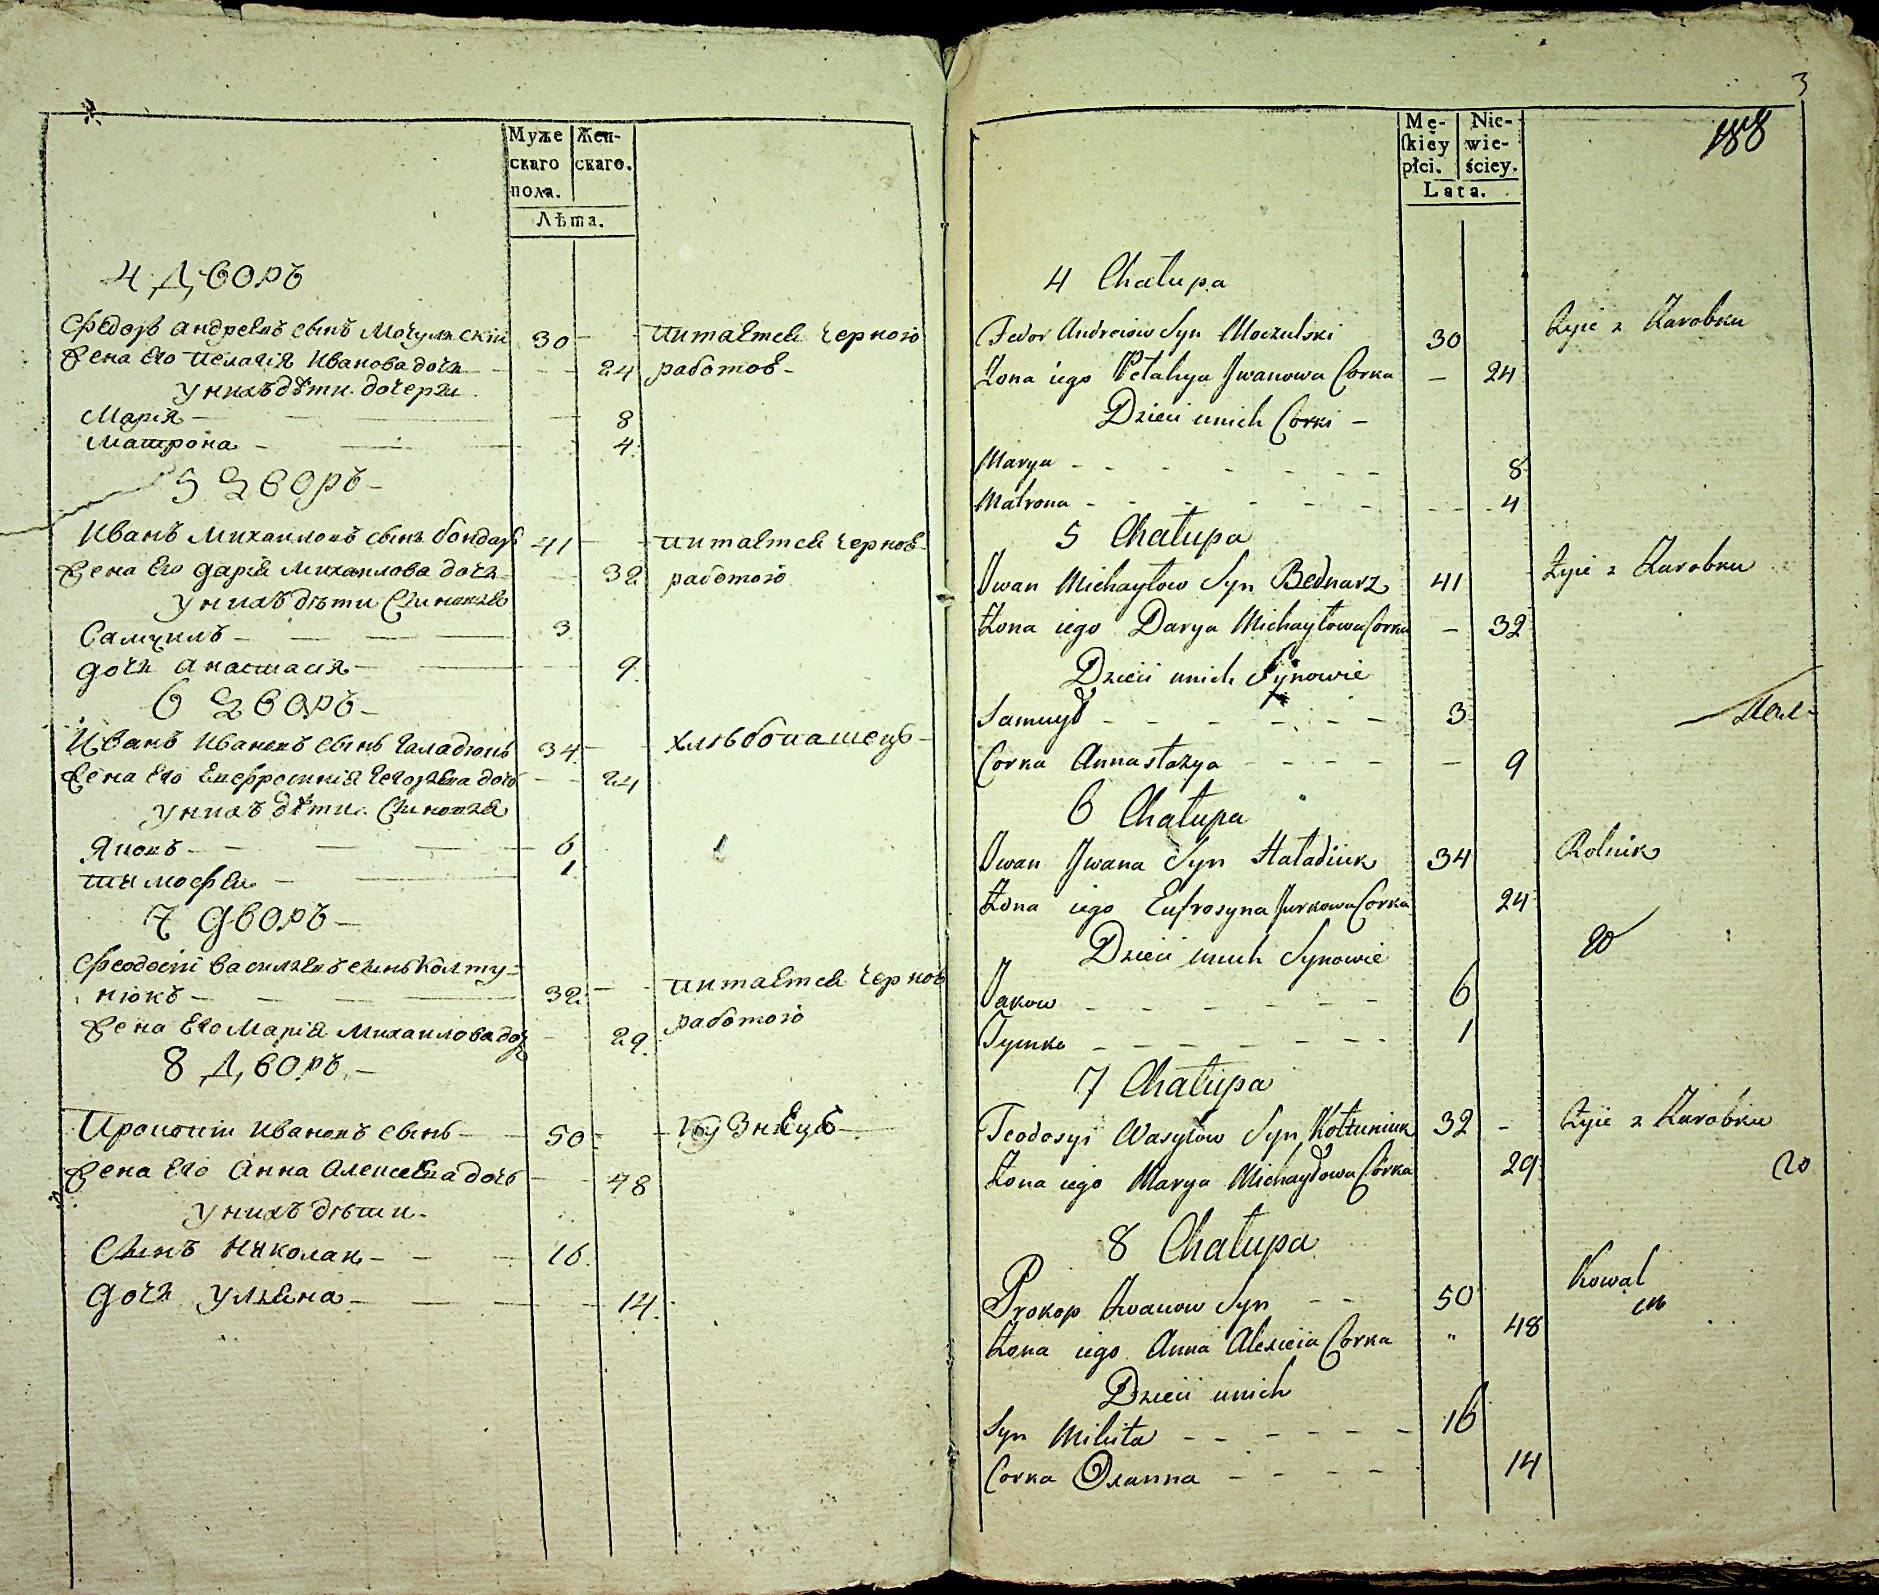 Муже Жен-
скаго скаго.
пола.
Лѣта.
4 Дворъ
Федоръ Андреевъ сынъ Мочульскій 30 питается черною
Жена его Пелагія Иванова дочь 24 работою
У нихъ дѣти дочери
Марія 8
Матрона 4.
5 Дворъ
Иванъ Михаиловъ сынъ бондарь 41 питается черною
Жена его Дарія Михаилова дочь 32 работою
У нихъ дѣти Сыновья
Самуилъ 3
дочь Анастасія 9.
6 Дворъ
Иванъ Ивановъ сынъ Галадюкъ 34 хлѣбопашецъ
Жена его Евфросинія дочь 24
У нихъ дѣти Сыновья
Яковъ 6
Тимофей 1
7 Дворъ
Феодосій Васильевъ сынъ Колту-
нюкъ 32. питается черною
Жена его Марія Михаилова доч 29. работою
8 Дворъ
Прокопій Ивановъ сынъ 50 Кузнецъ
Жена его Анна Алексеева дочь 48
У нихъ дѣти
Сынъ Николай 16
дочь Ульяна 14.
3
188
Mę- Nie-
skiey wie-
płci. ściey.
Lata.
4 Chałupa
Fedor Andreiow Syn Moczulski 30 Żyie z Zarobku
Żona iego Petahya Jwanowa Corka 24
Dzieci unich Corki
Marya 8
Matrona 4
5 Chałupa
Jwan Michayłow Syn Bednarz 41 Żyie z Zarobku
Żona iego Darya Michayłowa Corka 32
Dzieci unich Synowie
Samuył 3
Corka Annastazya 9
6 Chałupa
Jwan Jwana Syn Haładiuk 34 Rolnik
Żona iego Eufrosyna Jurkowa Corka 24
Dzieci unich Synowie
Jakow 6
Tymko 1
7 Chałupa
Teodosyi Wasylow Syn Kołtuniuk 32 Żyie z Zarobku
Żona iego Marya Michayłowa Córka 29
8 Chałupa
Prokop Jwanow Syn 50 Kowal
Żona iego Anna Alexieia Corka " 48
Dzieci unich
Syn Mikita 16
Corka Oxanna 14